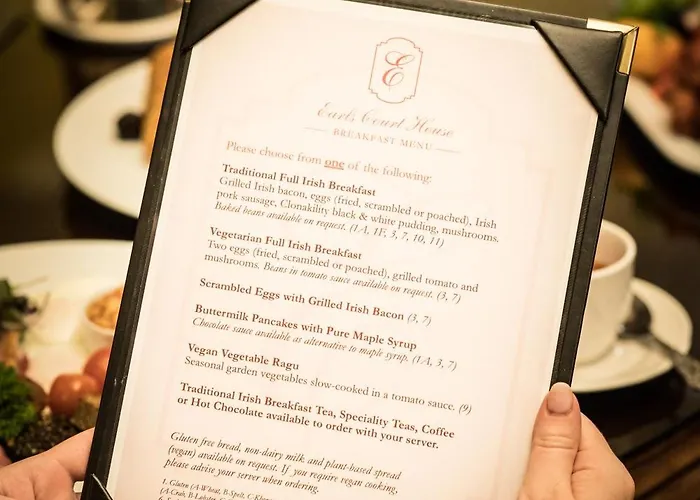 E
Earls Court House
BREAKFAST MENU
Please choose from one of the following:
Traditional Full Irish Breakfast
Grilled Irish bacon, eggs (fried, scrambled or poached), Irish
pork sausage, Clonakility black & white pudding, mushrooms.
Baked beans available on request. (1A, 1F, 3, 7, 10, 11)
Vegetarian Full Irish Breakfast
Two eggs (fried, scrambled or poached), grilled tomato and
mushrooms. Beans in tomato sauce available on request. (3, 7)
Scrambled Eggs with Grilled Irish Bacon (3, 7)
Buttermilk Pancakes with Pure Maple Syrup
Chocolate sauce available as alternative to maple syrup. (1A, 3, 7)
Vegan Vegetable Ragu
Seasonal garden vegetables slow-cooked in a tomato sauce. (9)
Traditional Irish Breakfast Tea, Speciality Teas, Coffee
or Hot Chocolate available to order with your server.
Gluten free bread, non-dairy milk and plant-based spread
(vegan) available on request. If you require vegan cooking,
please advise your server when ordering.
1. Gluten (A-Wheat, B-Spelt,
(A-Crab, B-Lobster,